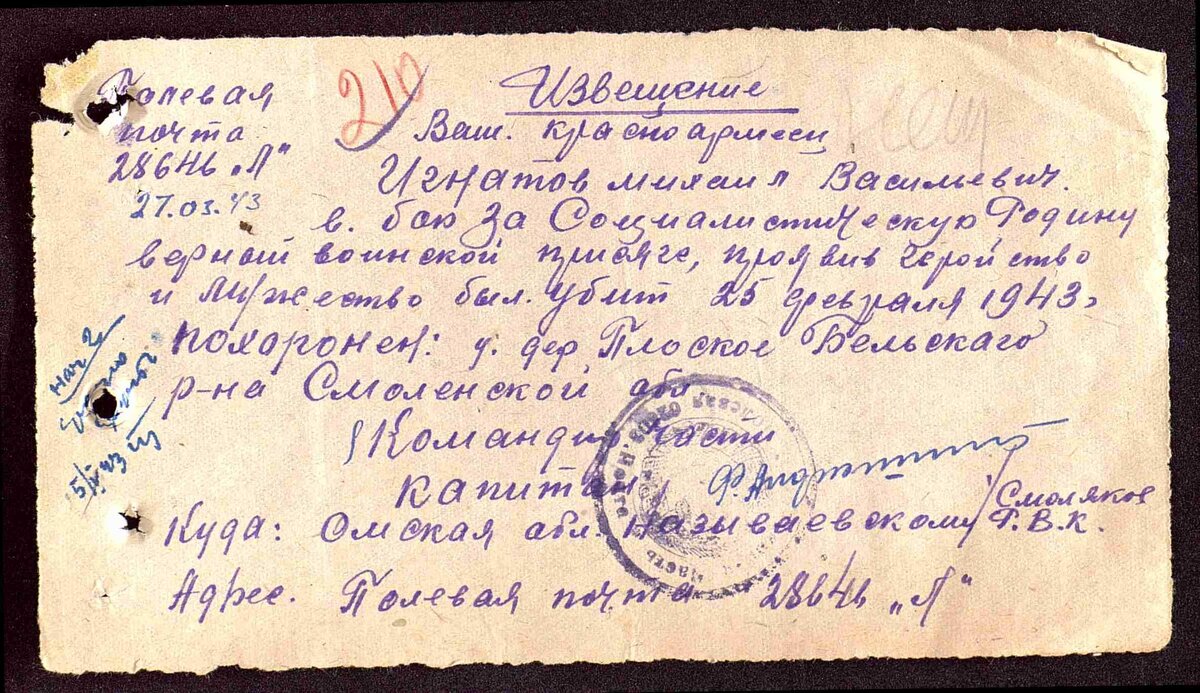 Полевая
почта
28646 „Л"
27.03.43
210
Извещение
Ваш. красноармеец
Игнатов михаил Васильевич.
в. бою За Социалистическую Родину
верный воинской присяге, проявив геройство
и мужество был. убит 25 февраля 1943г
похоронен: у. дер. Плоское Бельскаго
р-на Смоленской обл
Командир части
капитан
Смоляков
Куда: Омская обл. Называевскому Р.В.К.
Адрес. Полевая почта 28646 „Л"